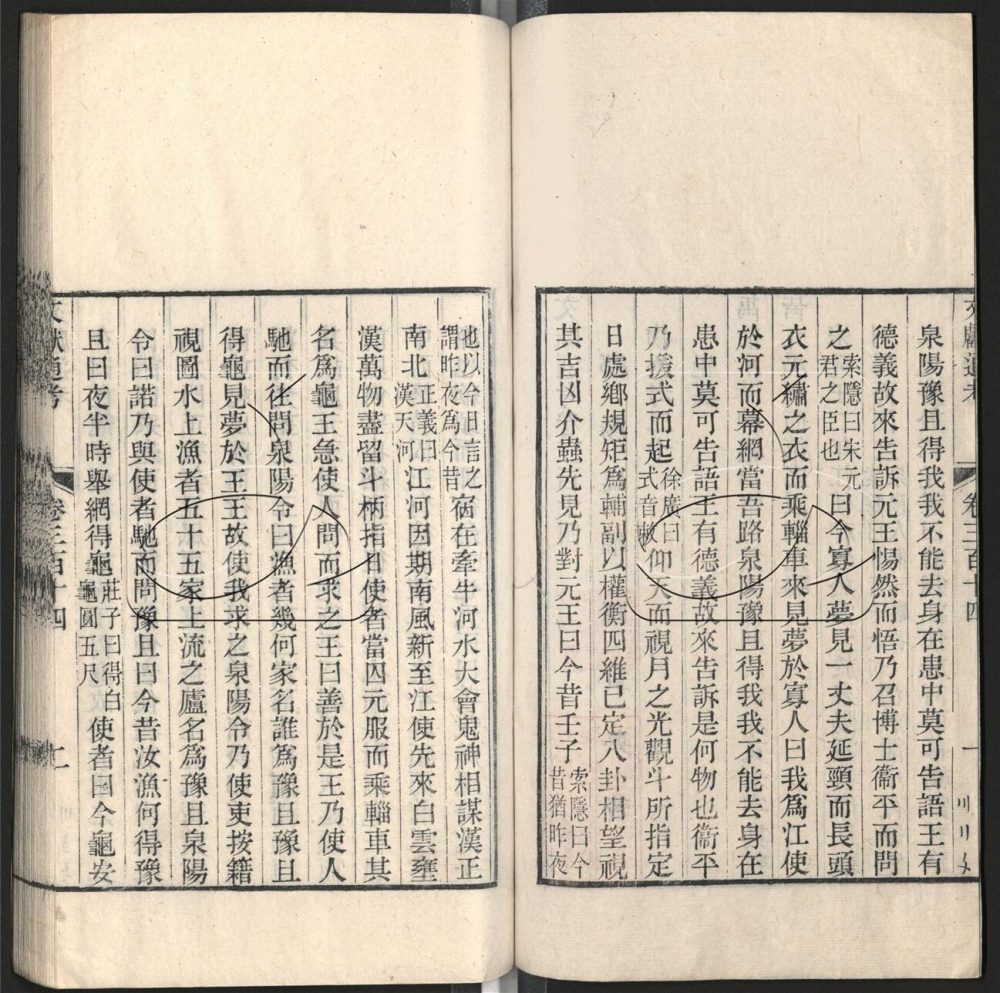 泉陽豫且得我我不能去身在患中莫可告語王有
德義故來告訴元王惕然而悟乃召博士衞平而問
之索隱曰宋元君之臣也曰今寡人夢見一丈夫延頸而長頭
衣元繡之衣而乘輜車來見夢於寡人曰我爲江使
於河而幕網當吾路泉陽豫且得我我不能去身在
患中莫可告語王有德義故來告訴是何物也衞平
乃援式而起徐廣曰式音勑仰天而視月之光觀斗所指定
日處鄉規矩爲輔副以權衡四維已定八卦相望視
其吉凶介蟲先見乃對元王曰今昔壬子索隱曰今昔猶昨夜
也以今日言之謂昨夜爲今昔宿在牽牛河水大會鬼神相謀漢正
南北正義曰漢天河江河因期南風新至江使先來白雲壅
漢萬物盡留斗柄指日使者當囚元服而乘輜車其
名爲龜王急使人問而求之王曰善於是王乃使人
馳而往問泉陽令曰漁者幾何家名誰爲豫且豫且
得龜見夢於王王故使我求之泉陽令乃使吏按籍
視圖水上漁者五十五家上流之廬名爲豫且泉陽
令曰諾乃與使者馳而問豫且曰今昔汝漁何得豫
且曰夜半時舉網得龜莊子曰得白龜圓五尺使者曰今龜安
文獻通考 卷三百十四